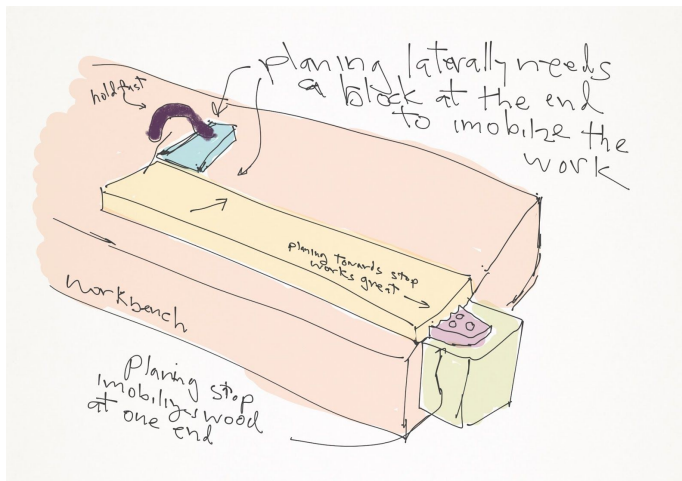 planing laterally needs
a block at the end
to imobilze the
work
holdfast
planing towards stop
works great
Workbench
Planing stop
imobilizes wood
at one end